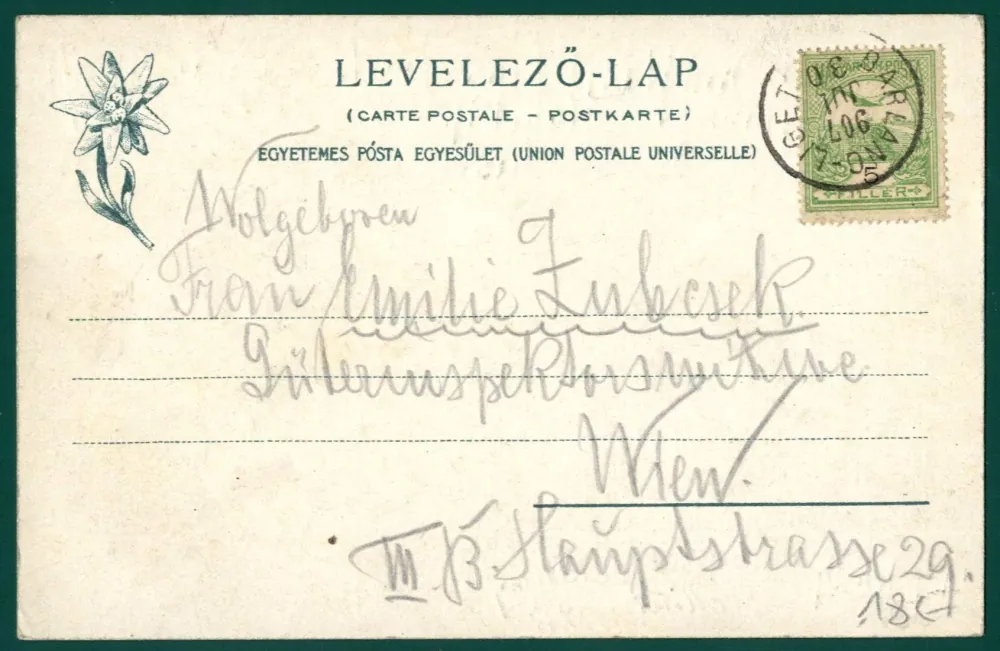 LEVELEZŐ-LAP
(CARTE POSTALE – POSTKARTE)
EGYETEMES PÓSTA EGYESÜLET (UNION POSTALE UNIVERSELLE)
BARLANG-LIGET
907
JUL
30
5
FILLÉR
Wolgeboren
Frau Emilie Zubcsek.
Güterinspektorswitwe
Wien.
III. B. Hauptstrasse 29.
18€